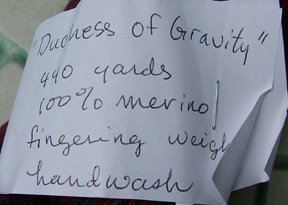 "Duchess of Gravity"
440 yards
100% merino
fingering weigh
handwash